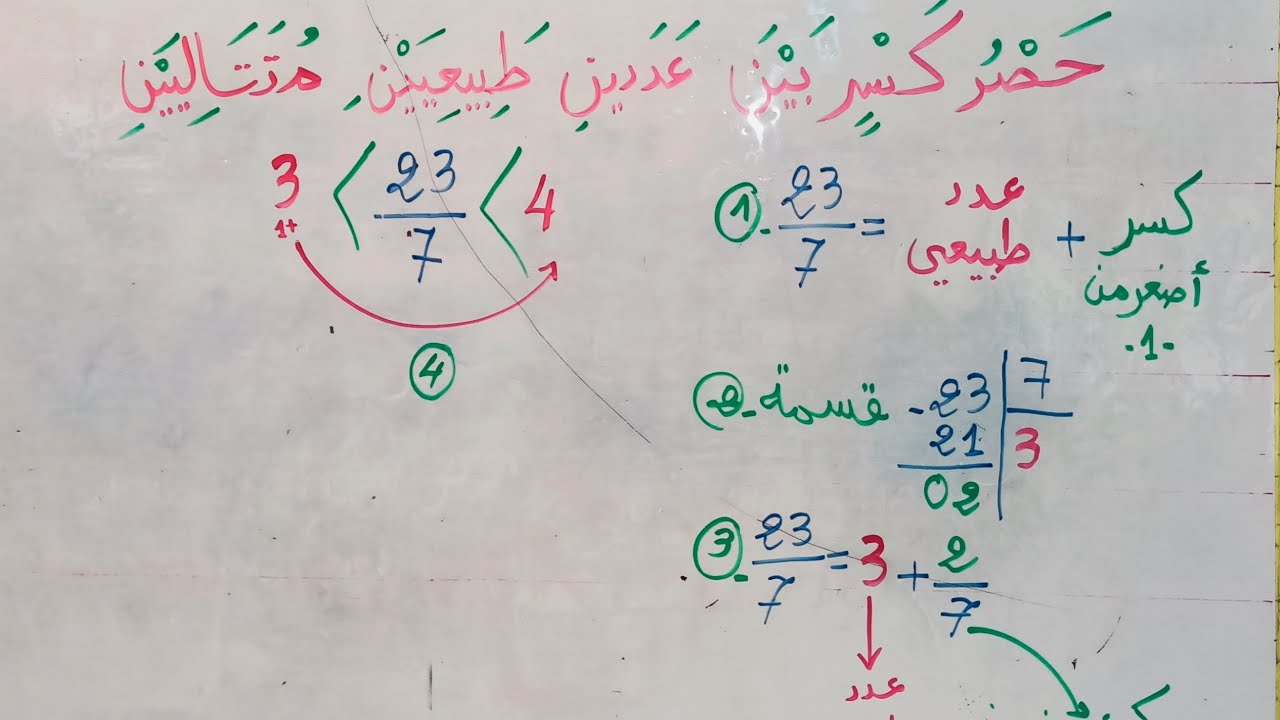 حَصْرُ كَسْرٍ بَيْنَ عَدَدَينِ طَبِيعِيَيْنِ مُتَتَالِيَيْنِ
3 < 23/7 < 4
1+
④
①. 23/7 = عدد طبيعي + كسر أصغر من .1.
②. قسمة - 23 | 7
21 | 3
02
③. 23/7 = 3 + 2/7
عدد